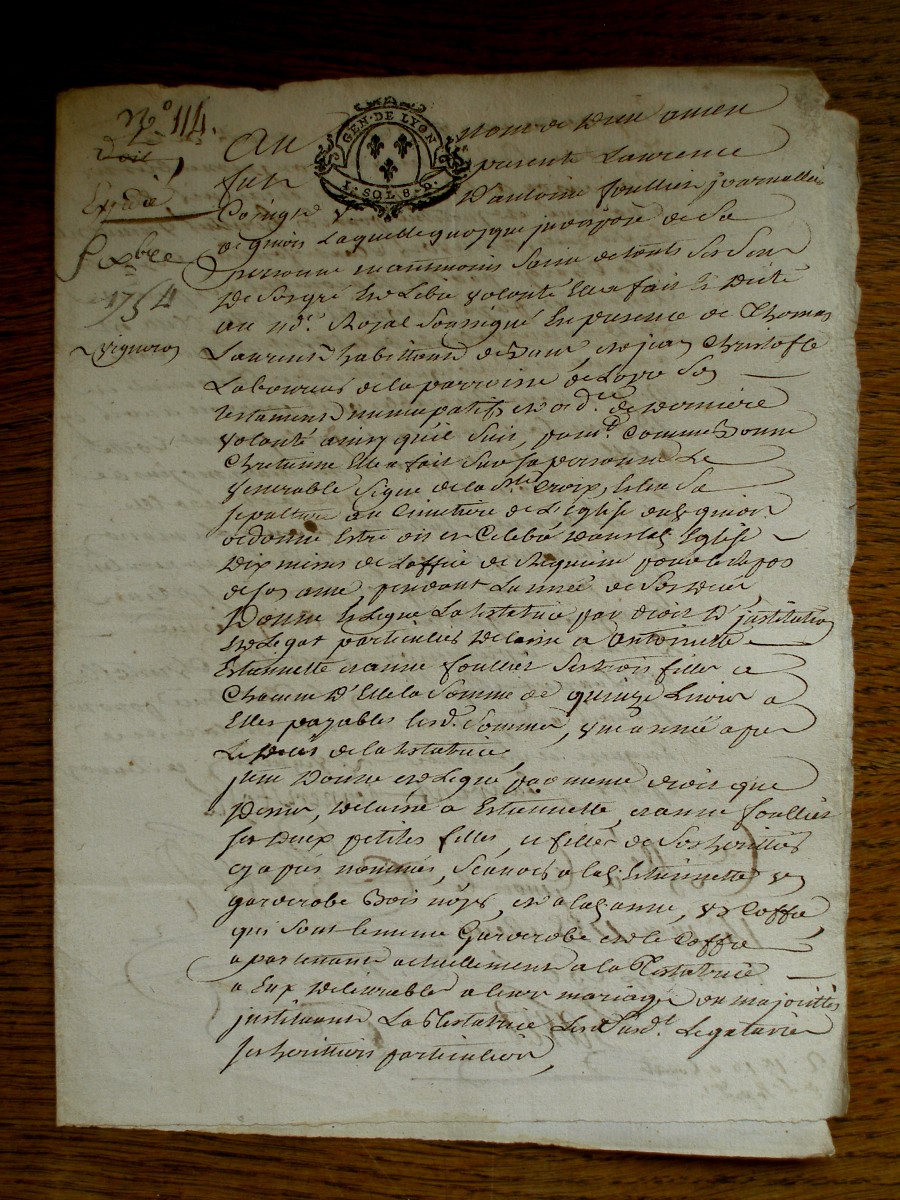 No. 114.
GEN. DE LYON
1. SOL 8. D.
Expedié
8bre
1754
Vigneron
Au nom de Dieu amen
fut presente Laurence
d'antoine foullier journallier
de laquelle quoyque jndisposé de Sa
personne neantmoins Saine de touts Ses Sens
De Songré et Libre volonté Elle a fait et Dicté
au nore. Royal Soussigné En presence de Thomas
Laurent habittant de et jean Christofle
Laboureur de la parroisse de Son
testament nuncupatif et ordre. de derniere
volonté ainsy quil Suit, premt. Comme bonne
Chretienne Elle a fait Sur Sa personne Le
Venerable Signe de la Ste Croix, Eslu Sa
sepulture au Cimetiere de L'Eglise
ordonne Estre dit et Celebré dans lad. Eglise
Dix messes de L'office de Requiem pour le Repos
de son ame pendant Lannée de Son Decés
Donne et Legue La testatrice par droit D'jnstitution
et Legat particulier delaissé a Antoinette
Estiennette et anne foullier Ses trois filles a
Chacune D'Elle la Somme de quinze Livres a
Elles payables lesd. Sommes, une année apres
Le Deces de la testatrice
jtem Donne et Legue par meme droit que
Dessus, delaissé a Estiennette, et anne foullier
ses Deux petites filles, et filles de Son heritier
cy apres nommé, Scavoir a lad. Estiennette un
garderobe Bois noyer, et a lad. anne, un Coffre
qui Sont le meme Garderobe et le Coffre
apartenant actuellement a la Testatrice
a Eux delivrable a leur mariage ou majorité
jnstituant La Testatrice Lesd. Susd. Legataires
ses heritiers particuliers